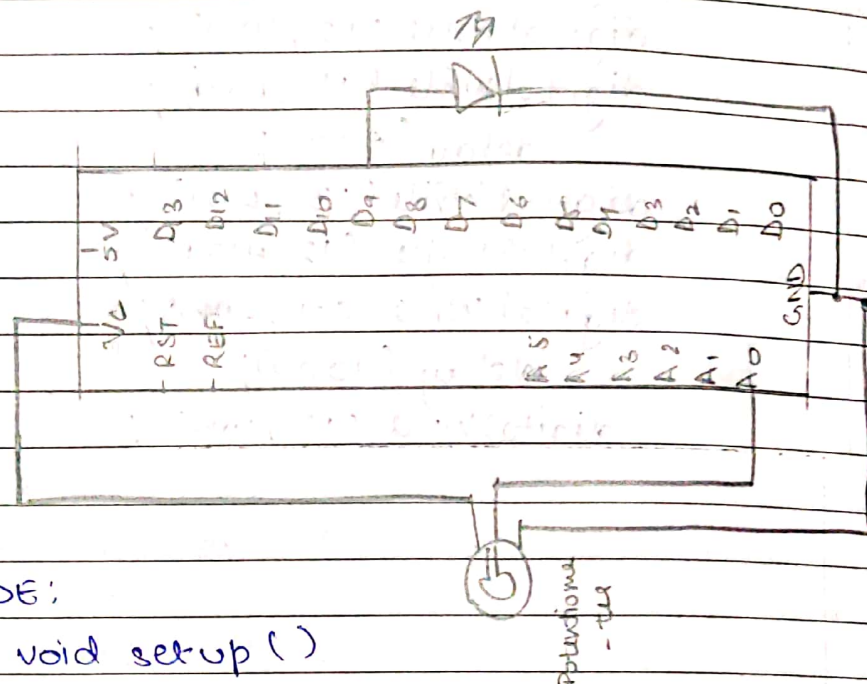 5V
D13
D12
D11
D10
D9
D8
D7
D6
D5
D4
D3
D2
D1
D0
GND
RST
REF
A5
A4
A3
A2
A1
A0
Potentiome
-ter
DE:
void setup()